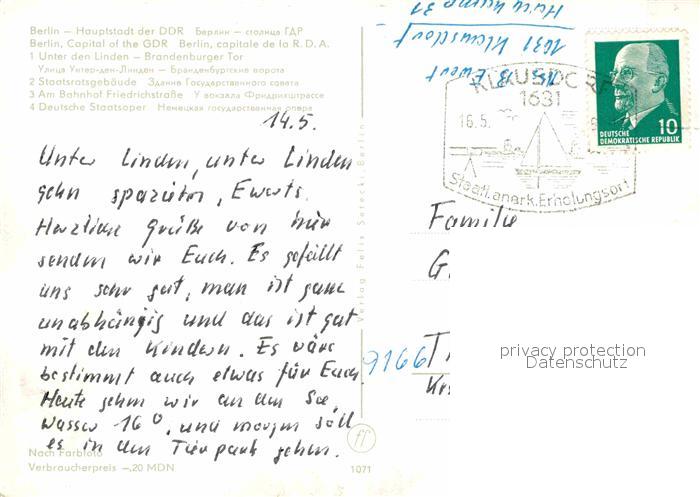 Berlin – Hauptstadt der DDR Берлин – столица ГДР
Berlin, Capital of the GDR Berlin, capitale de la R. D. A.
1 Unter den Linden – Brandenburger Tor
Улица Унтер-ден-Линден – Бранденбургские ворота
2 Staatsratsgebäude Здание Государственного совета
3 Am Bahnhof Friedrichstraße У вокзала Фридрихштрассе
4 Deutsche Staatsoper Немецкая государственная опера
14.5.
Unter Linden, unter Linden
gehn spazieren, Ewerts.
Herzliche Grüße von hier
senden wir Euch. Es gefällt
uns sehr gut, man ist ganz
unabhängig und das ist gut
mit den Kindern. Es wäre
bestimmt auch etwas für Euch.
Heute gehen wir an den See,
Wasser 16°, und morgen soll
es in den Tierpark gehen.
Nach Farbfoto
Verbraucherpreis –,20 MDN
1071
Verlag Felix Setecki, Berlin
Ewert
1631 Klausdorf
KLAUSDORF
1631
16.5.
Staatl. anerk. Erholungsort
10
DEUTSCHE
DEMOKRATISCHE REPUBLIK
Familie
G
9166 T
Kr
privacy protection
Datenschutz